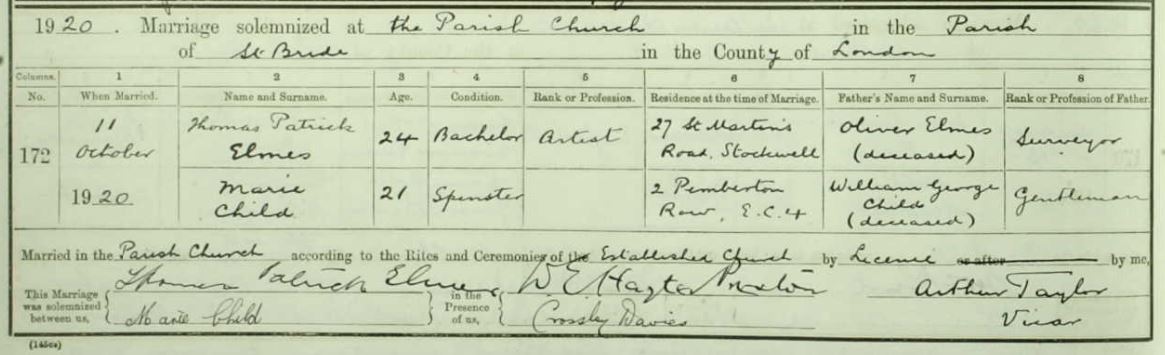 1920. Marriage solemnized at the Parish Church in the Parish
of St Bride in the County of London
Columns. 1 2 3 4 5 6 7 8
No. When Married. Name and Surname. Age. Condition. Rank or Profession. Residence at the time of Marriage. Father's Name and Surname. Rank or Profession of Father.
172 11 October 1920
Thomas Patrick Elmes 24 Bachelor Artist 27 St Martin's Road, Stockwell Oliver Elmes (deceased) Surveyor
Marie Child 21 Spinster 2 Pemberton Row, E.C.4 William George Child (deceased) Gentleman
Married in the Parish Church according to the Rites and Ceremonies of the Established Church by Licence or after by me,
This Marriage was solemnized between us, Thomas Patrick Elmes
Marie Child
in the Presence of us, W E Hayter Preston
Crossby Davies
Arthur Taylor
Vicar
(145cs)